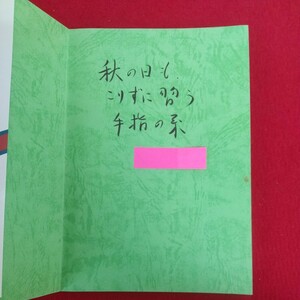 秋の日も
こりずに習う
手指の